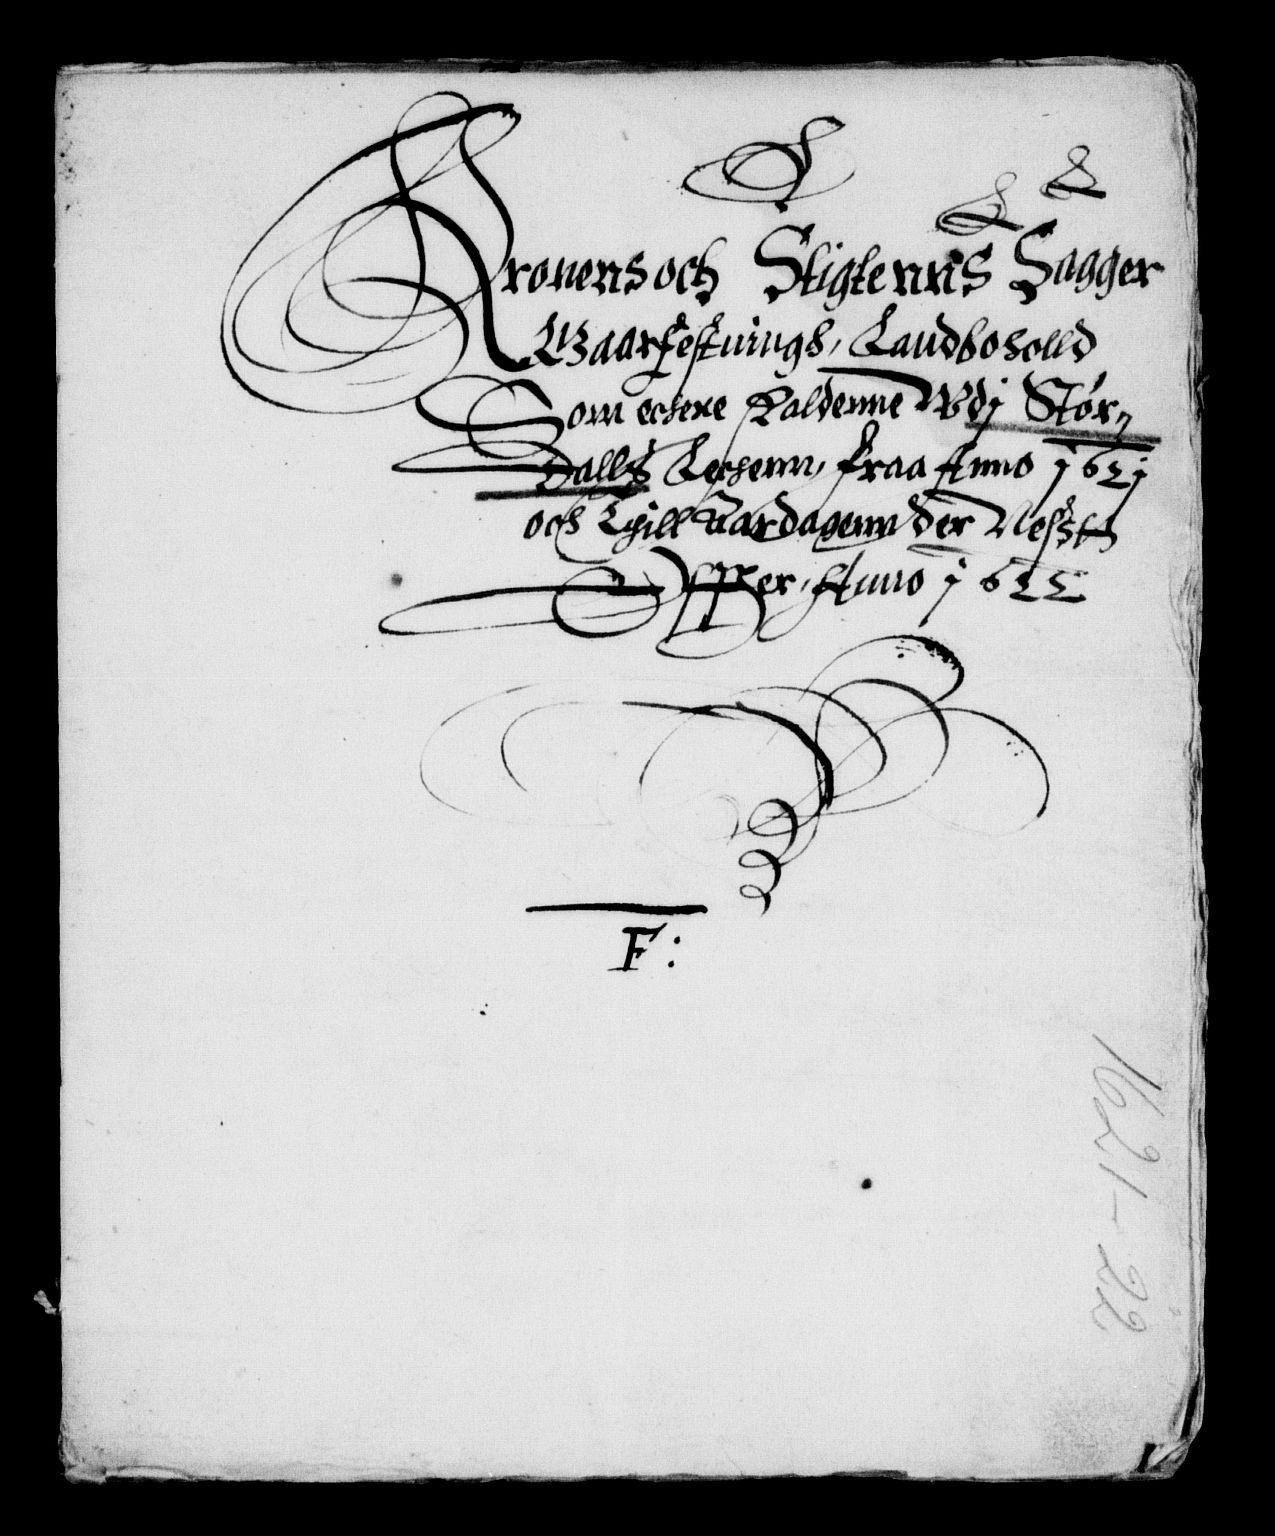 Kronens och Stigtenns Sagger
Gaarfestnings, Landboholld
Som echere Faldenne Wdj Stør-
dalls Leehenn, fraa Anno 1621
och Thill Fardagenn der Nest
Effter, Anno 1622
F:
1621-22